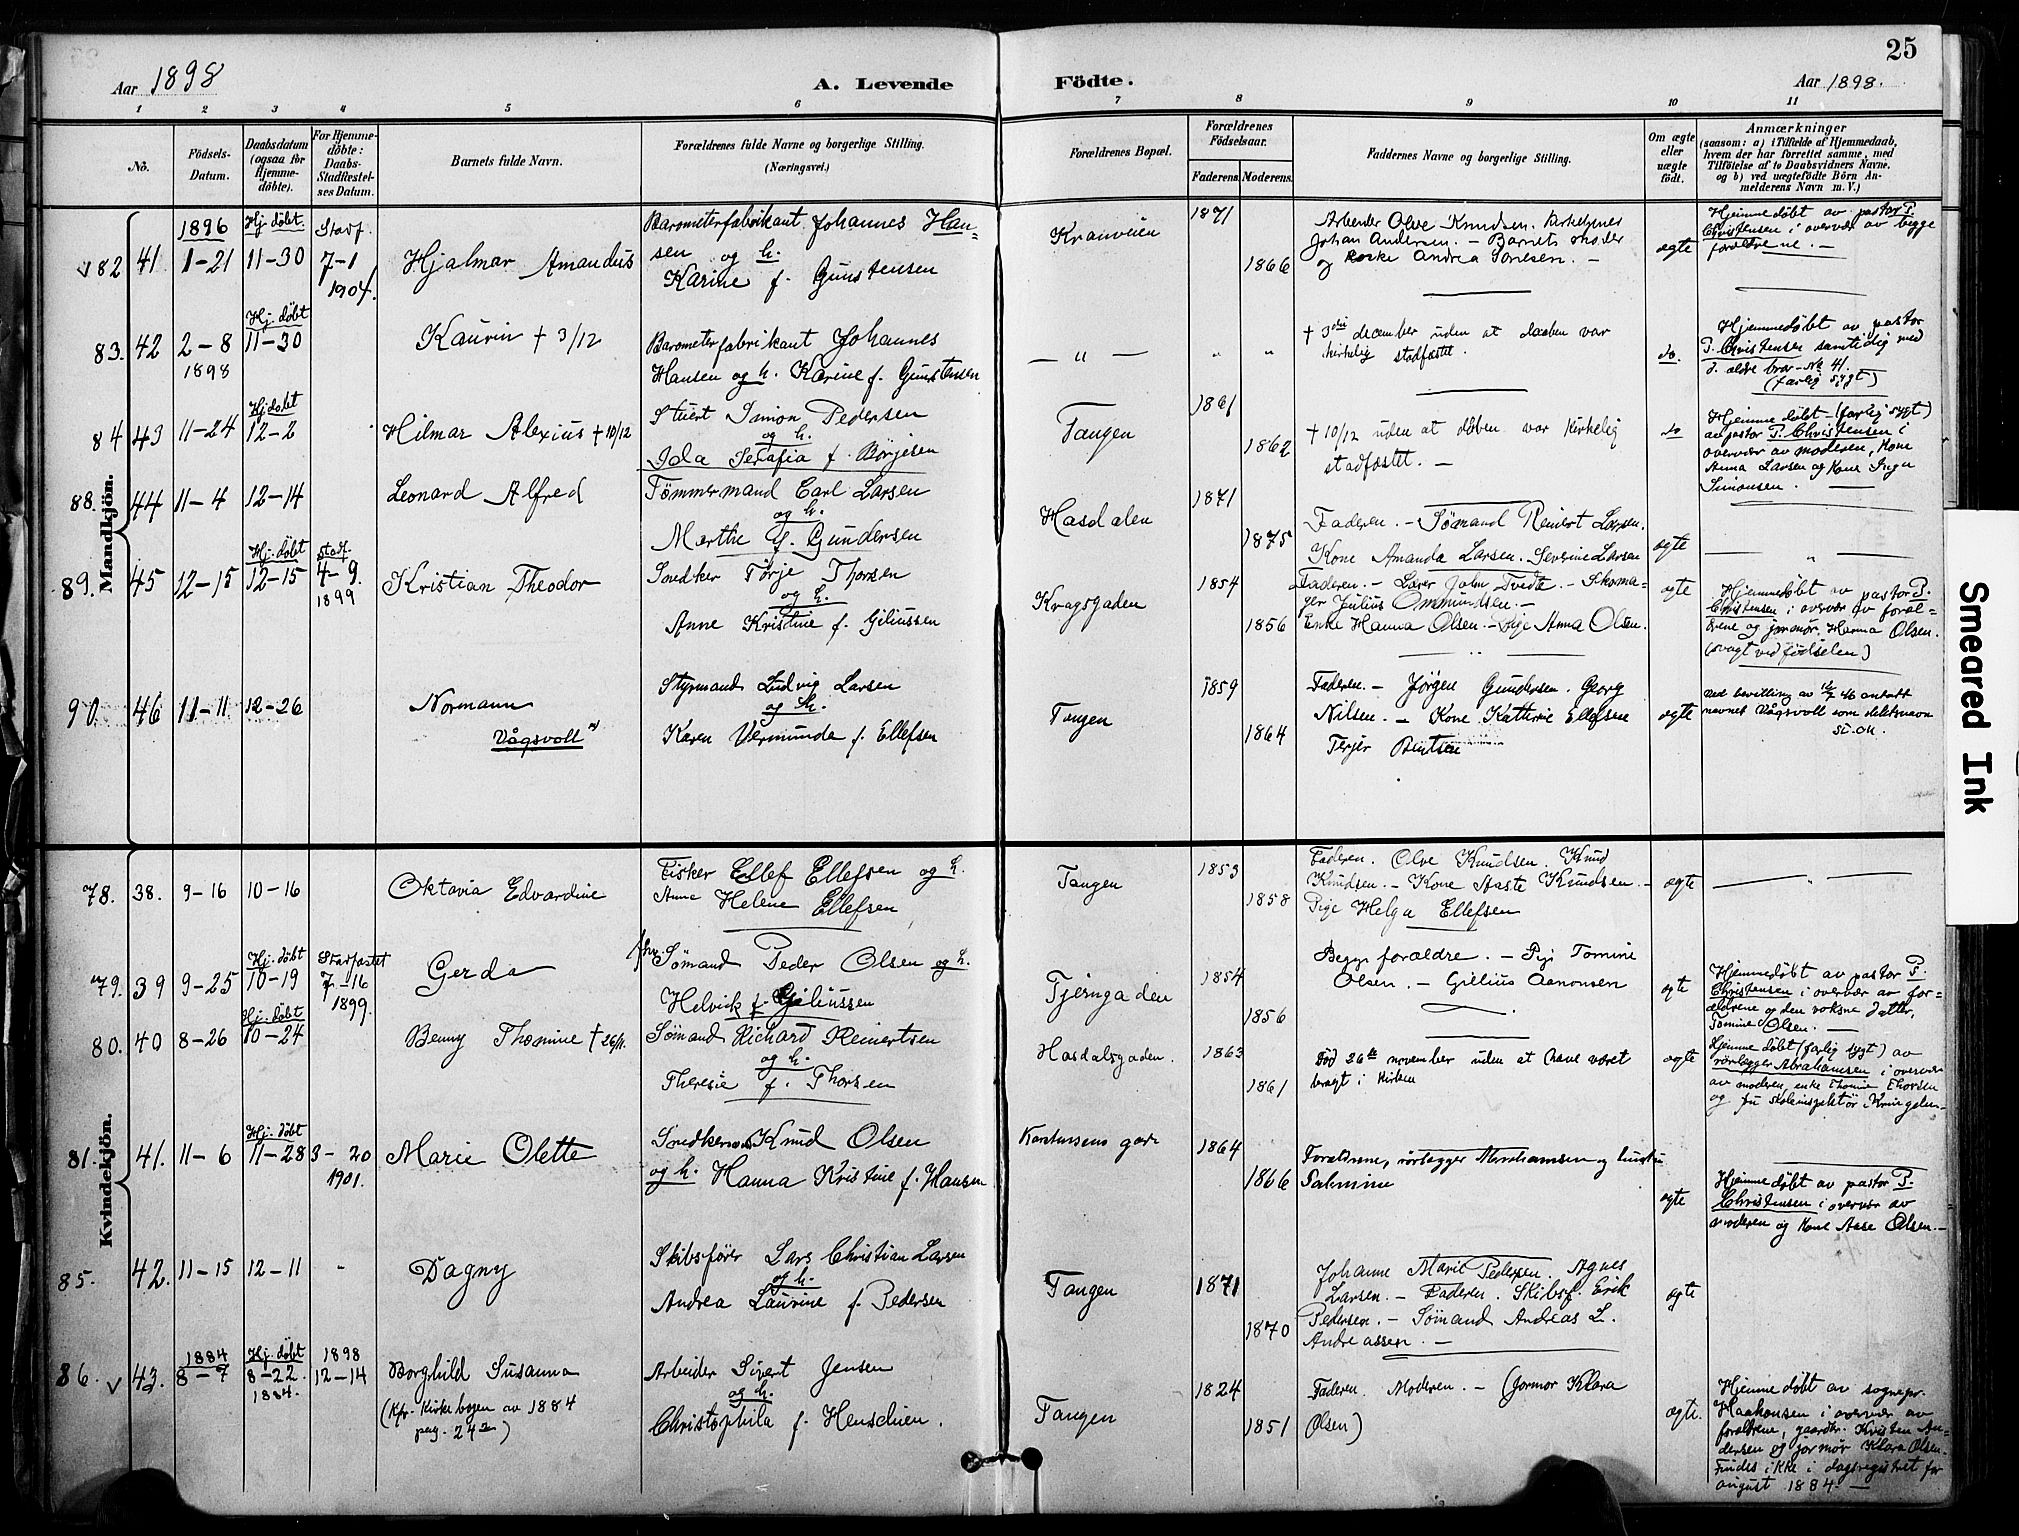 25
Aar 1898
A. Levende
Födte.
Aar 1898.
1 2 3 4 5 6 7 8 9 10 11
No.
Födsels-
Datum.
Daabsdatum
(ogsaa for
Hjemme-
döbte).
For Hjemme-
döbte:
Daabs-
Stadfæstel-
ses Datum.
Barnets fulde Navn.
Forældrenes fulde Navne og borgerlige Stilling.
(Næringsvei.)
Forældrenes Bopæl.
Forældrenes
Födselsaar.
Faderens. Moderens.
Faddernes Navne og borgerlige Stilling.
Om ægte
eller
uægte
födt.
Anmærkninger
(saasom: a) i Tilfælde af Hjemmedaab,
hvem der har forrettet samme, med
Tilföielse af to Daabsvidners Navne,
og b) ved uægtefödte Börn An-
melderens Navn m. V.)
Mandkjön.
82 41
1896
1-21
Hj. døbt
11-30
Stadf.
7-1
1904.
Hjalmar Amandus
Barometerfabrikant Johannes Han-
sen og h.
Karine f. Gunstensen
Kranveien
1871
1866
Arbeider Olve Knudsen. Kirketjener
Johan Andersen. - Barnets moder
og Andrea
ægte
Hjemmedøbt av pastor P.
Christensen i overvær av begge
forældrene. -
83. 42
2-8
1898
Hj. døbt
11-30
Kaurin + 3/12
Barometerfabrikant Johannes
Hansen og h. Karine f. Gunstensen
- " -
" "
+ 3die december uden at daaben var
kirkelig stadfæstet.
do.
Hjemmedøbt av pastor
P. Christensen samtidig med
d. ældre bror - No 41.
(farlig sygt)
84 43
11-24
Hj. døbt
12-2
Hilmar Alexius + 10/12
Stuert Simon Pedersen
og h.
Ida Serafia f. Børjesen
Tangen
1861
1862
+ 10/12 uden at dåben var kirkelig
stadfæstet. -
do
Hjemmedøbt - (farlig sygt)
av pastor P. Christensen i
overvær av moderen, Kone
Anna Larsen og Kone Inga
Simonsen.
88. 44
11-4
12-14
Leonard Alfred
Tømmermand Carl Larsen
og h.
Marthe f. Gundersen
Hasdalen
1871
1875
Faderen. - Sømand Reinert Larsen.
Kone Amanda Larsen. Severine Larsen
ægte
- " -
89. 45
12-15
Hj. døbt
12-15
stadf.
4-9.
1899
Kristian Theodor
Snedker Torje Thorsen
og h.
Anne Kristine f. Giliussen
Kragsgaden
1854
1856
Faderen. - Lærer John Tvedte. - Skoma-
ger Julius Ommundsen. -
Enke Hanna Olsen. - Pige Anna Olsen.
ægte
Hjemmedøbt av pastor P.
Christensen i overvær av foræl-
drene og jormor. Hanna Olsen.
(svagt ved fødselen)
90. 46
11-11
12-26
Normann
Vågsvoll
Styrmand Ludvig Larsen
og h.
Karen Vermunda f. Ellefsen
Tangen
1859
1864
Faderen. - Jørgen Gundersen. Georg
Nilsen. - Kone Kathrine Ellefsen
Terjer Bentsen
ægte
Ved bevilling av 46 antatt
navnet Vågsvoll som slektsnavn
Kvindekjön.
78. 38.
9-16
10-16
Oktavia Edvardine
Fisker Ellef Ellefsen og h.
Anne Helene Ellefsen
Tangen
1853
1858
Faderen. Olve Knudsen. Knud
Knudsen. - Kone Aaste Knudsen. -
Pige Helga Ellefsen
ægte
- " -
79. 39
9-25
Hj. døbt
10-19
Stadfæstet
7-16
1899.
Gerda
Sømand Peder Olsen og h.
Helvick f. Giliussen
Tjerngaden
1854
1856
Begge forældre. - Pige Tomine
Olsen. - Gillius Aanonsen
ægte
Hjemmedøbt av pastor P.
Christensen i overvær av for=
ældrene og den voksne datter,
Tomine Olsen. -
80. 40
8-26
Hj. døbt
10-24
Benny Thomine + 26/11.
Sømand Richard Reinertsen
og h.
Theresie f. Thorsen
Hasdalsgaden.
1863
1861
Død 26de november uden at have været
bragt i kirken
ægte
Hjemmedøbt (farlig sygt) av
rørlægger Abrahamsen i overvær
av moderen, enke Thomine Thorsen
og
81. 41.
11-6
Hj. døbt
11-28
3-20
1901.
Marie Olette
Snedker Knud Olsen
og h. Hanna Kristine f. Hansen
1864
1866
Forældrene, rørlægger Abrahamsen og hustru
Salmine
ægte
Hjemmedøbt av pastor P.
Christensen i overvær av
moderen og Kone Aase Olsen. -
85. 42.
11-15
12-11
-
Dagny
Skibsfører Lars Christian Larsen
og h.
Andrea Laurine f. Pedersen
Tangen
1871
1870
Johanne Marie Pedersen. Agnes
Larsen. - Faderen. Skibsf. Erik
Pedersen. - Sømand Andreas L.
Andreassen. -
ægte
86. 43.
1884
8-7
Hj. døbt
8-22.
1884.
1898
12-14
Borghild Susanna
(Kfr. Kirkebogen av 1884
pag. 242)
Arbeider Sivert Jensen
og h.
Christophila f. Henschien.
Tangen
1824
1851
Faderen. Moderen. - (Jormor Klara
Olsen)
ægte.
Hjemmedøbt av sognepr.
Haakonsen i overvær av
forældrene, gaardbr. Kristen An-
dersen og jormor Klara Olsen.
Findes ikke i dagsregistret for
august 1884. -
Smeared Ink